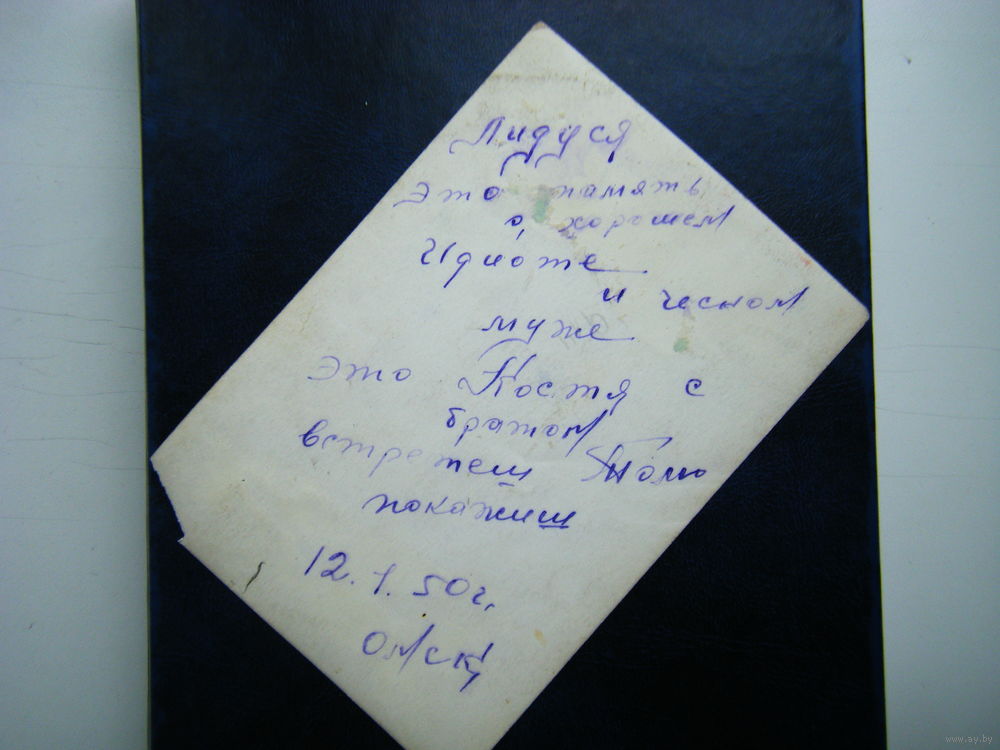 Лидуся
Это память
о хорошем
Идиоте
и чесном
муже
Это Костя с
братом
встретеш Толю
покажиш
12.1.50г.
Омск
www.ay.by